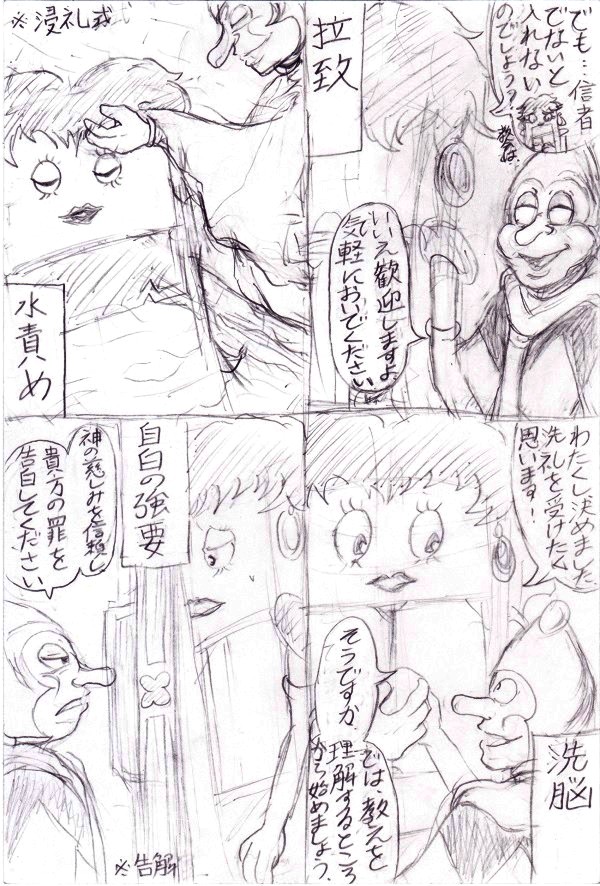 でも…信者
でないと
入れない
のでしょう?
拉致
いいえ歓迎しますよ
気軽においでください
わたくし決めました
洗礼を受けたく
思います!
そうですか
では、教えを
理解するところ
から始めましょう。
洗脳
※浸礼式
水責め
自白の強要
神の慈しみを信頼し
貴方の罪を
告白してください
※告解